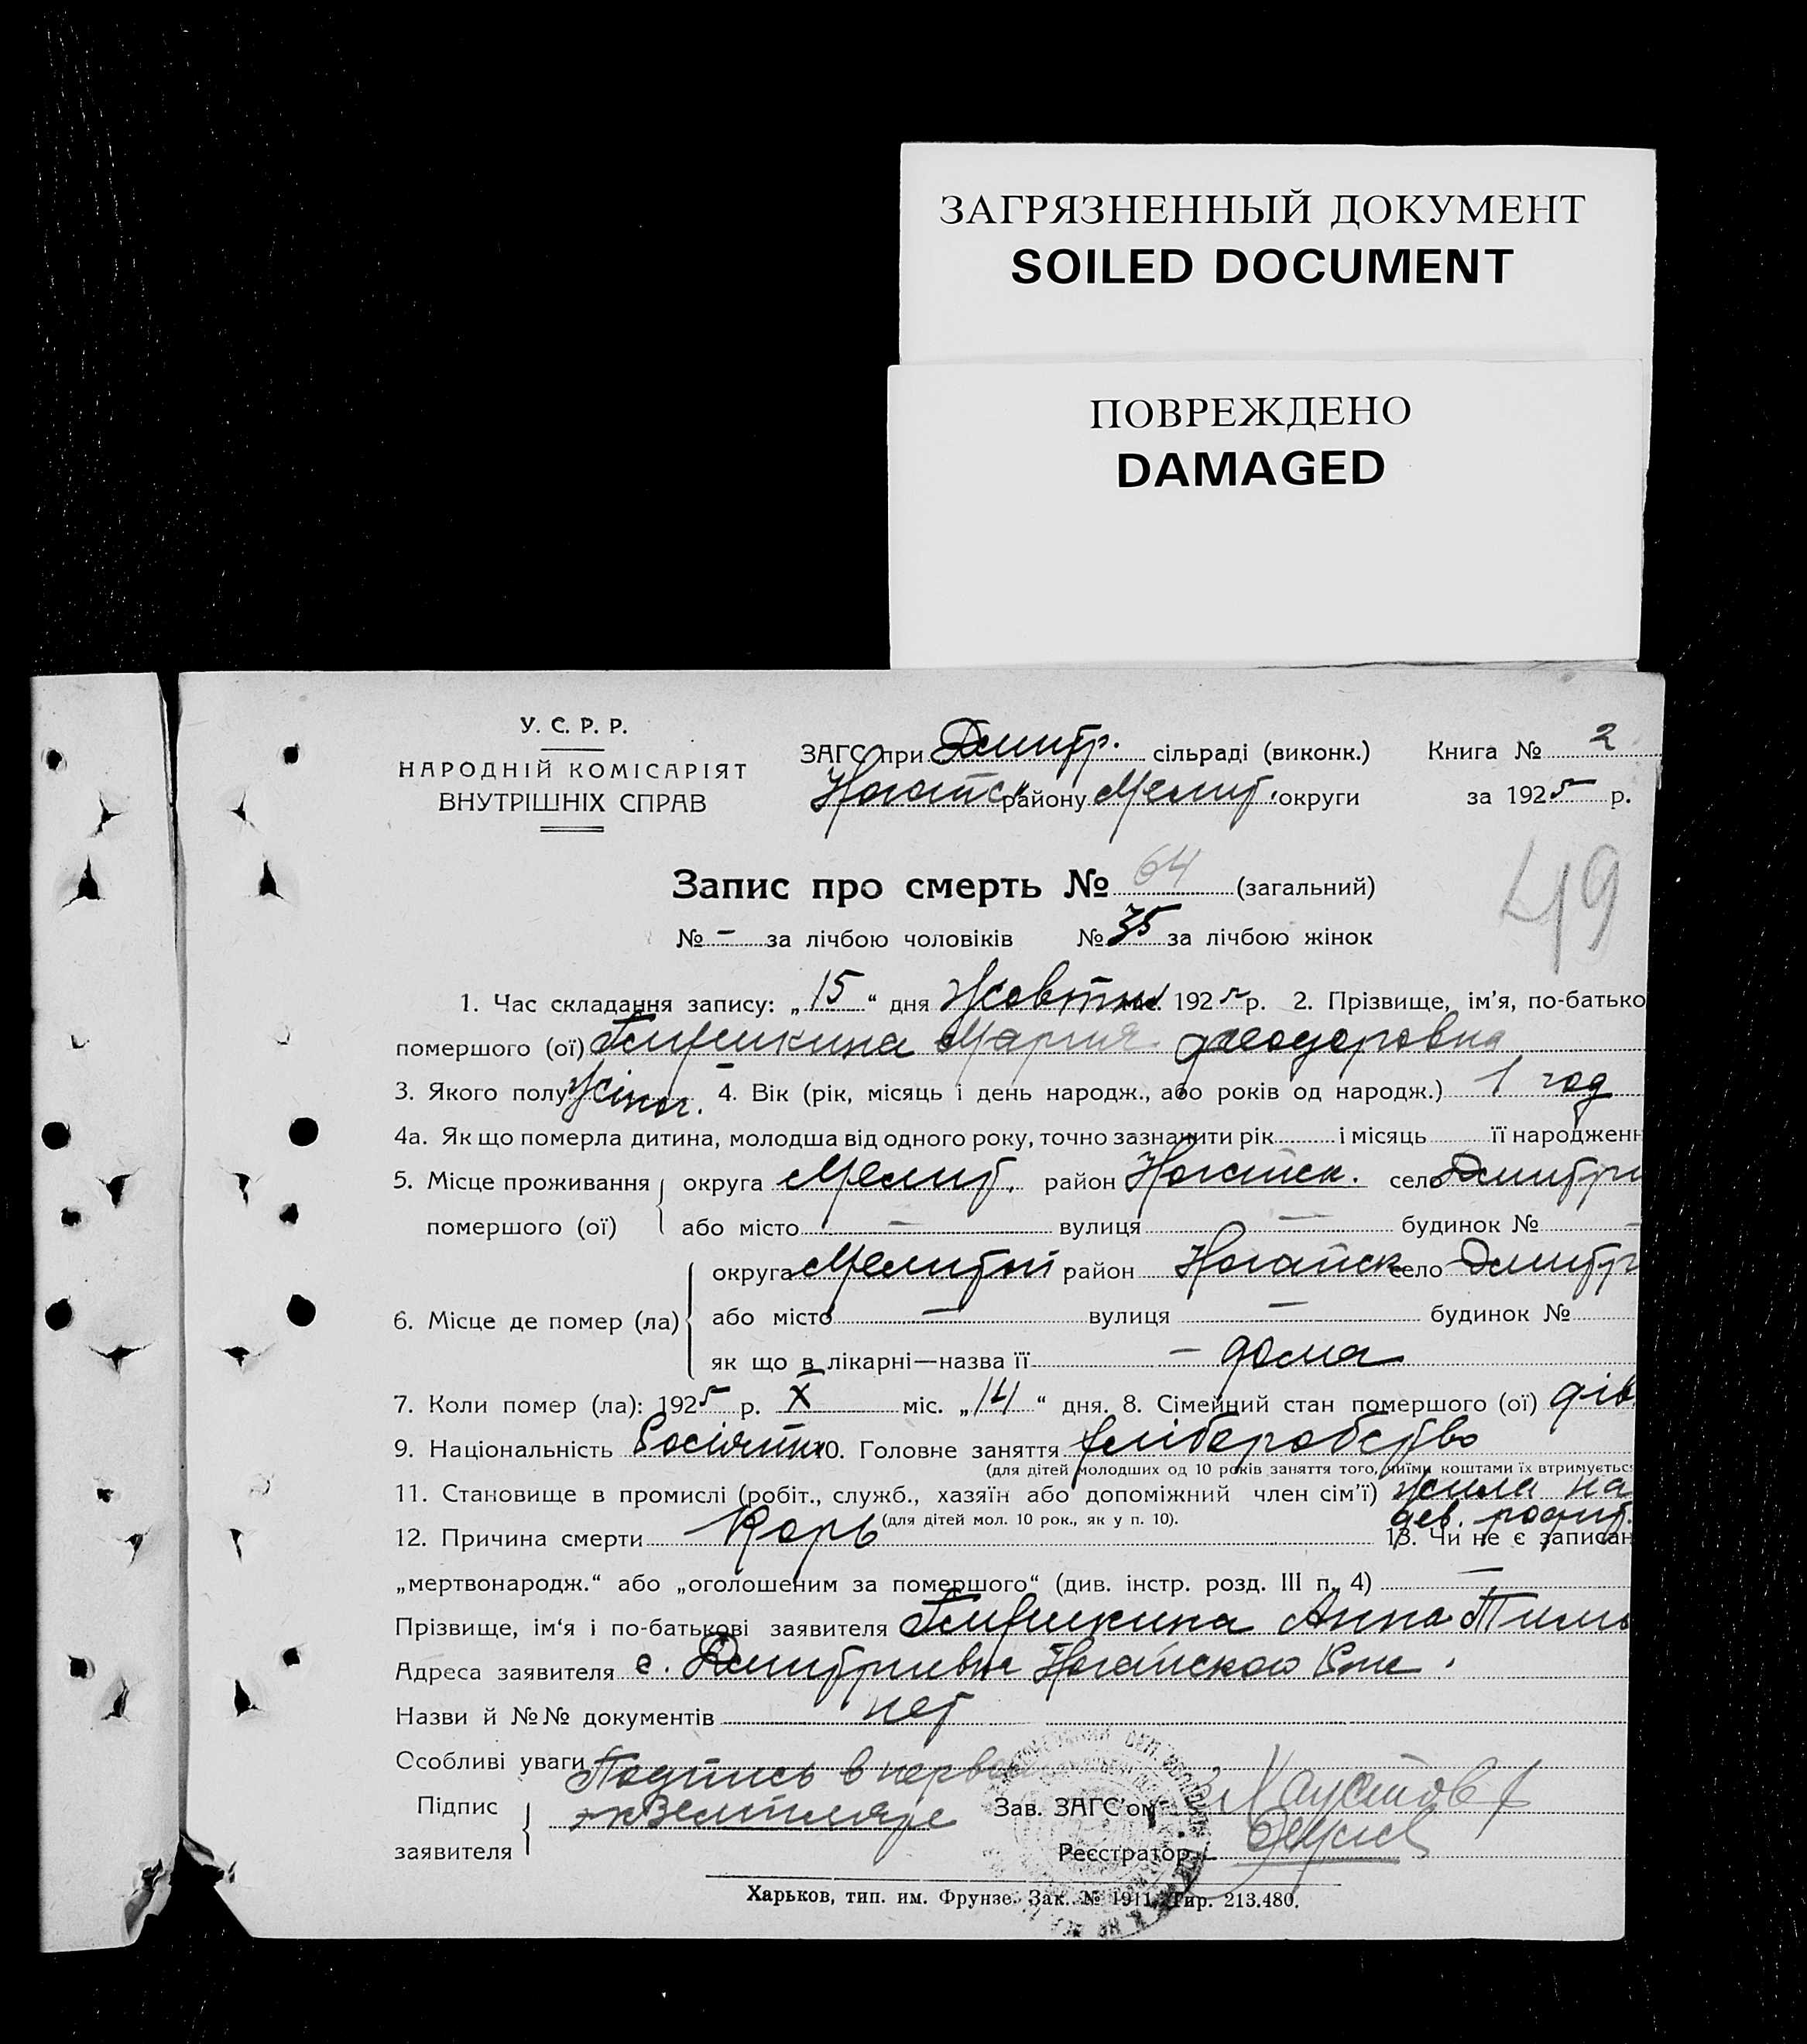 ЗАГРЯЗНЕННЫЙ ДОКУМЕНТ
SOILED DOCUMENT
ПОВРЕЖДЕНО
DAMAGED
У. С. Р. Р.
НАРОДНІЙ КОМІСАРІЯТ
ВНУТРІШНІХ СПРАВ
ЗАГС при Дмитр. сільраді (виконк.) Книга № 2
Ногайск району Мелит. округи за 1925 р.
Запис про смерть № 64 (загальний)
49
№ – за лічбою чоловіків № 35 за лічбою жінок
1. Час складання запису: „15“ дня Жовтня 1925 р. 2. Прізвище, ім’я, по-батько
помершого (ої) Мария Феодоровна
3. Якого полу жіноч. 4. Вік (рік, місяць і день народж., або років од народж.) 1 год
4а. Як що померла дитина, молодша від одного року, точно зазначити рік і місяць її народженн
5. Місце проживання округа Мелит. район Ногайск. село Дмитри
помершого (ої) або місто – вулиця – будинок № –
округа Мелитоп район Ногайск село Дмитр
6. Місце де помер (ла) або місто – вулиця – будинок №
як що в лікарні—назва її – дома
7. Коли помер (ла): 1925 р. X міс. „14“ дня. 8. Сімейний стан помершого (ої) дів.
9. Національність Росіянин 10. Головне заняття хліборобство
(для дітей молодших од 10 років заняття того, чиїми коштами їх втримуєтьс
11. Становище в промислі (робіт., служб., хазяїн або допоміжний член сім’ї) жила на
(для дітей мол. 10 рок., як у п. 10).
12. Причина смерти Корь 13. Чи не є записан
„мертвонародж.“ або „оголошеним за помершого“ (див. інстр. розд. III п. 4) –
Прізвище, ім‘я і по-батькові заявителя Анна Тимо
Адреса заявителя с. Дмитриевка Ногайского
Назви й №№ документів нет
Особливі уваги Подпись в первом
Підпис экземпляре Зав. ЗАГС’ом Хаустов
заявителя Реєстратор
Харьков, тип. им. Фрунзе. Зак. № 1911. Тир. 213.480.